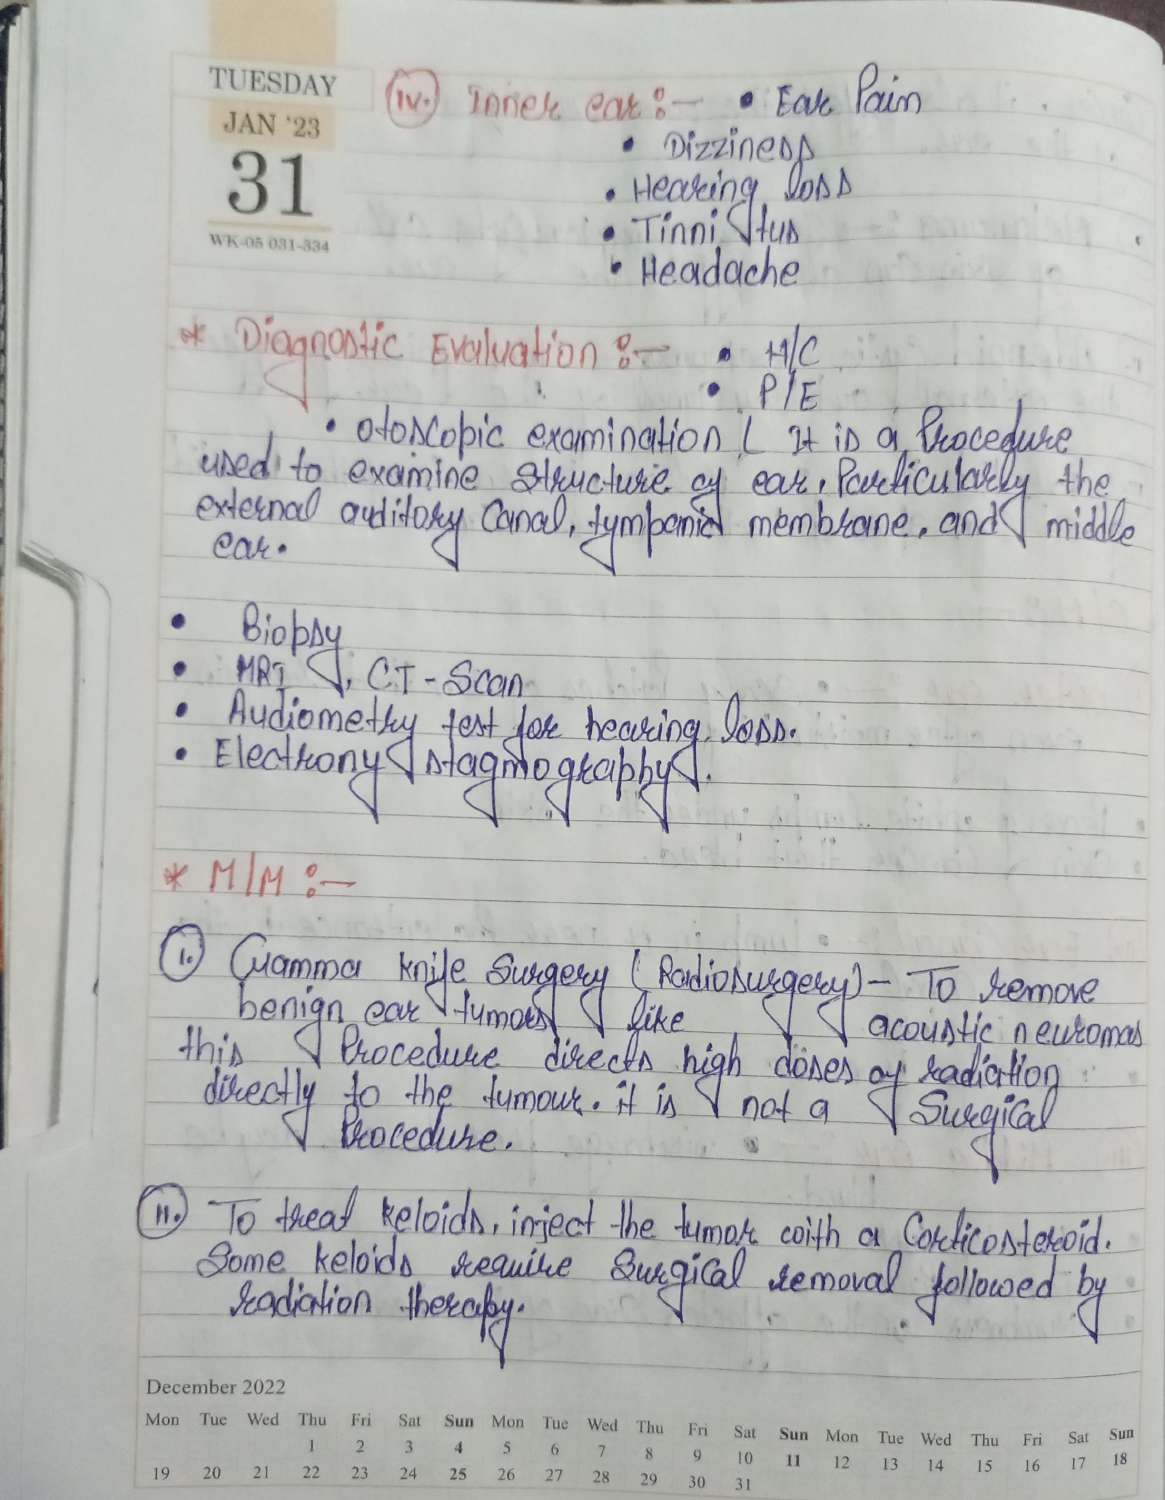 TUESDAY
JAN '23
31
WK-05 031-334
iv. Inner ear :- • Ear Pain
• Dizziness
• Hearing loss
• Tinnitus
• Headache
* Diagnostic Evaluation :- • H/C
• P/E
• otoscopic examination ( It is a Procedure
used to examine structure of ear, Particularly the
external auditory Canal, tympanic membrane, and middle
ear.
• Biopsy
• MRI, CT-Scan
• Audiometry test for hearing loss.
• Electronystagmography.
* M/M :-
I. Gamma knife Surgery (Radiosurgery) - To remove
benign ear tumors like acoustic neuromas
this Procedure directs high doses of radiation
directly to the tumour. it is not a Surgical
Procedure.
II. To treat keloids, inject the tumor with a Corticosteroid.
Some keloids require Surgical removal followed by
radiation therapy.
December 2022
Mon Tue Wed Thu Fri Sat Sun Mon Tue Wed Thu Fri Sat Sun Mon Tue Wed Thu Fri Sat Sun
1 2 3 4 5 6 7 8 9 10 11 12 13 14 15 16 17 18
19 20 21 22 23 24 25 26 27 28 29 30 31